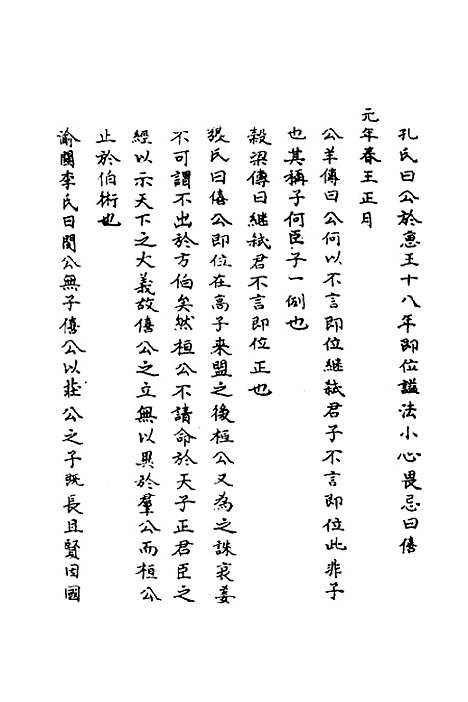 孔氏曰公於惠王十八年即位諡法小心畏忌曰僖
元年春王正月
公羊傳曰公何以不言即位繼弑君子不言即位此非子
也其稱子何臣子一例也
穀梁傳曰繼弑君不言即位正也
張氏曰僖公即位在高子來盟之後桓公又為之誅哀姜
不可謂不出於方伯矣然桓公不請命於天子正君臣之
經以示天下之大義故僖公之立無以異於羣公而桓公
止於伯術也
渝關李氏曰閔公無子僖公以莊公之子既長且賢因國